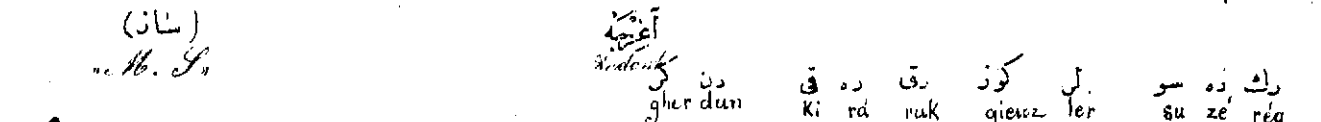 (ساز) آغرجه
"M. S"
كر دن قى ره رق كوز لر سو زه رك
gher dun Ki rá ruk gieuz ler su zé rég